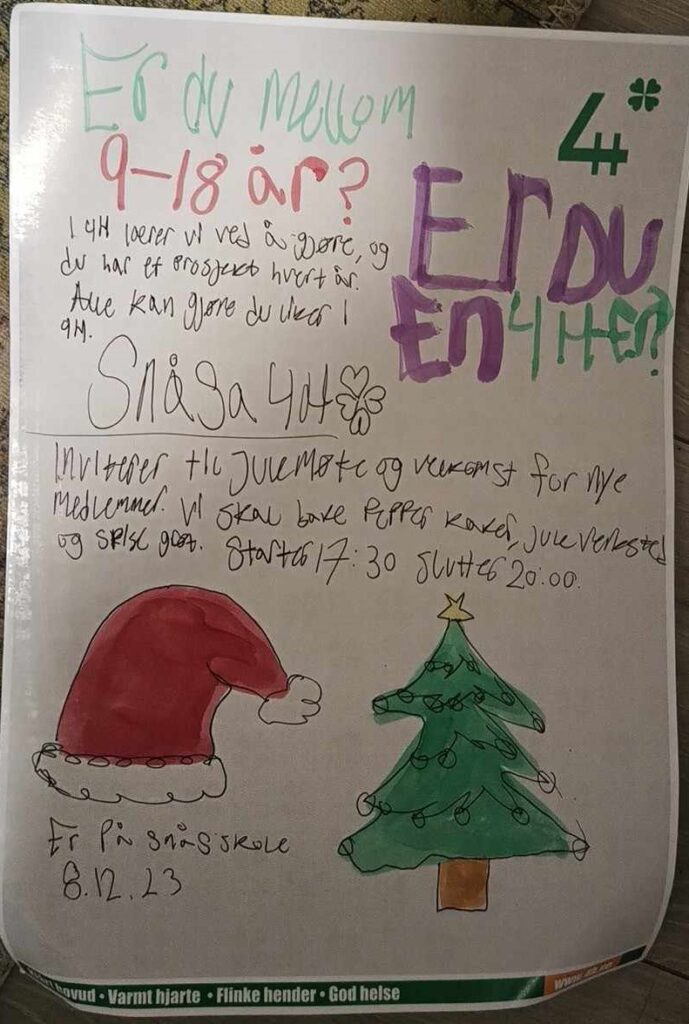 Er du mellom
9-18 år?
4H
I 4H lærer vi ved å gjøre, og
du har et prosjekt hvert år.
Alle kan gjøre du liker i
4H.
Er Du
En 4H-er?
Snåsa 4H
Inviterer til julemøte og velkomst for nye
medlemmer. Vi skal bake Pepper kaker, juleverksted
og spise grøt. Starter 17:30 slutter 20:00.
Er på snåsskole
8.12.23
hovud • Varmt hjarte • Flinke hender • God helse